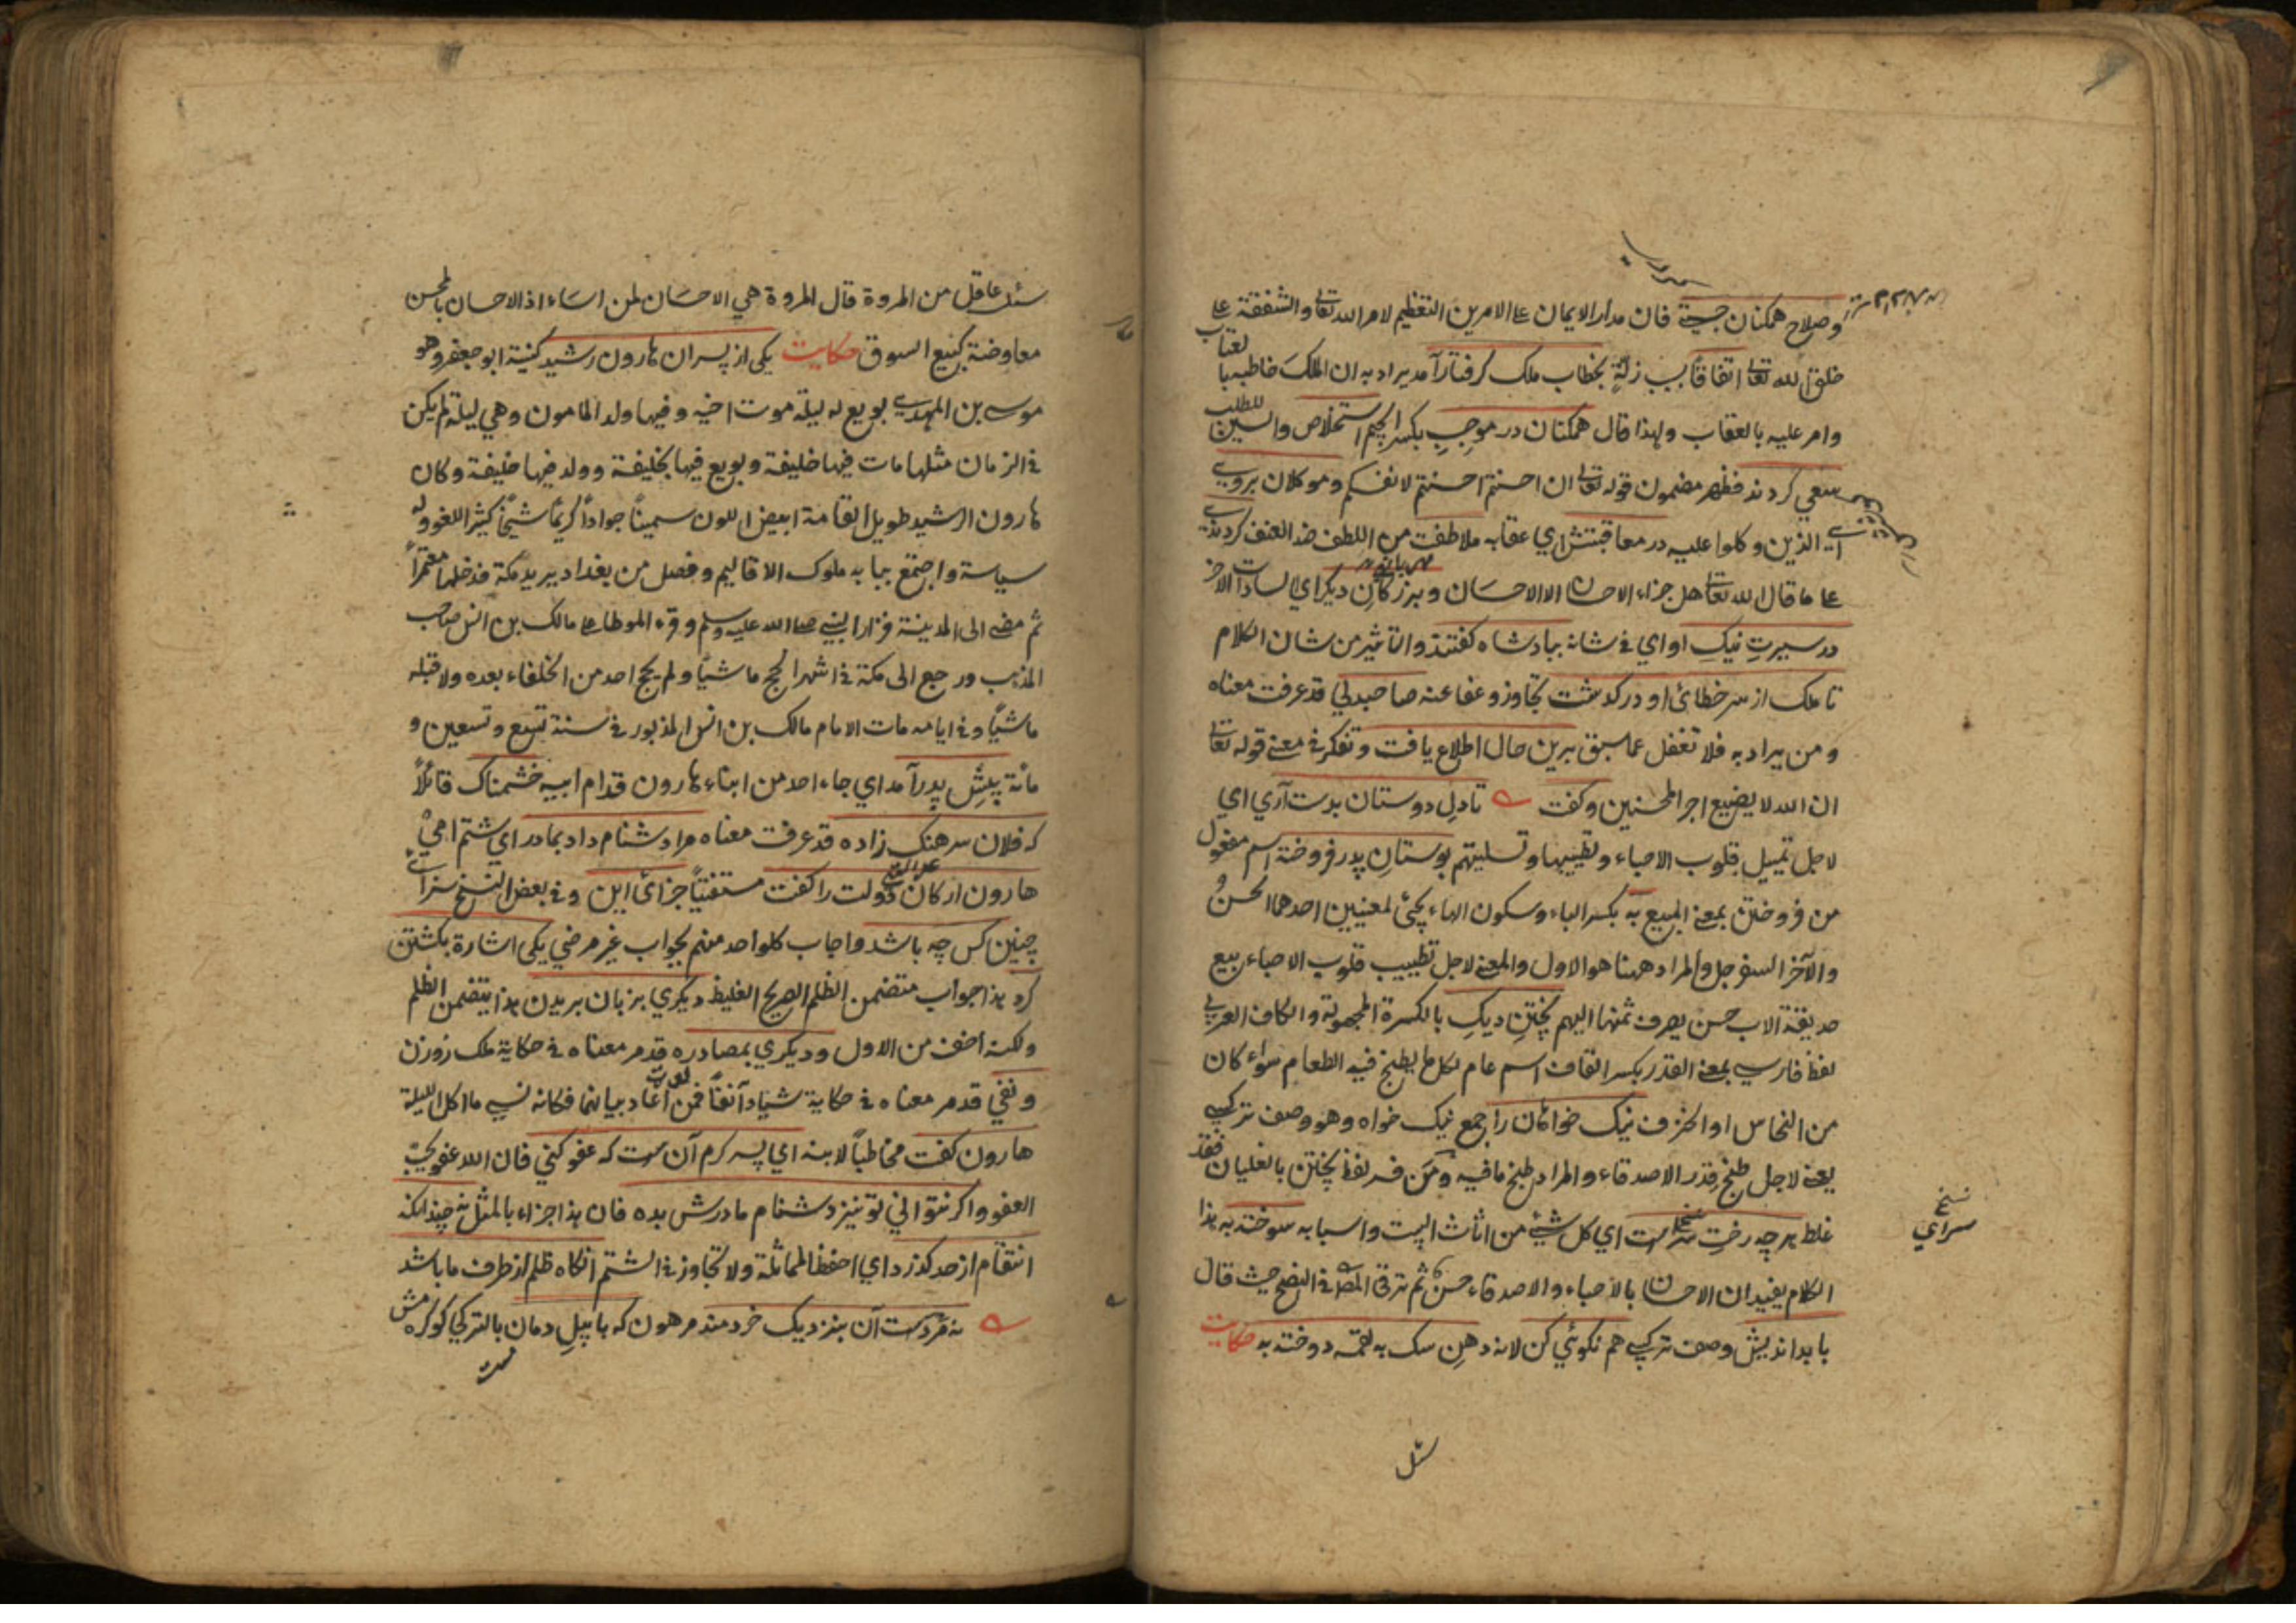 وصلاح همكنان جستى فان مدار الايمان على الامرين التعظيم لامر الله تعالى والشفقة على
خلق الله تعالى اتفاقا بسبب زلة بخطاب ملك كرفتار آمد يراد به ان الملك خاطبه بالعتاب
وامر عليه بالعقاب ولهذا قال همكنان در موجب بكسر الجيم استخلاص والسين للطلب
سعي كردند فظهر مضمون قوله تعالى ان احسنتم احسنتم لانفسكم وموكلان بروى
اى الذين وكلوا عليه در معاقبتش اي عقابه ملاطفت من اللطف ضد العنف كردندى
على ما قال الله تعالى هل جزاء الاحسان الا الاحسان وبزركان ديكر اي السادات الاخر
در سيرت نيك او اي في شانه ببادشاه كفتند والتاثير من شان الكلام
تا ملك از سر خطائ او دركدشت تجاوز وعفا عنه صاحبدلي قد عرفت معناه
ومن يراد به فلا تغفل عما سبق برين حال اطلاع يافت وتفكر في معنى قوله تعالى
ان الله لا يضيع اجر المحسنين وكفت تا دل دوستان بدست آري اي
لاجل تمييل قلوب الاحباء وتطييبها وتسليتهم بوستان پدر فروخته اسم مفعول
من فروختن بمعنى المبيع به بكسر الباء وسكون الهاء يجئ لمعنيين احدهما الحسن
والآخر السفرجل والمراد ههنا هو الاول والمعنى لاجل تطييب قلوب الاحباء بيع
حديقة الاب حسن يصرف ثمنها اليهم پختن ديك بالكسرة المجهولة والكاف العربي
لفظ فارسي بمعنى القدر بكسر القاف اسم عام لكل ما يطبخ فيه الطعام سواء كان
من النحاس او الخزف نيك خواهان را جمع نيك خواه وهو وصف تركيبى
يعنى لاجل طبخ قدر الاصدقاء والمراد طبخ ما فيه ومن فسر لفظ پختن بالغليان فقد
غلط هر چه رخت سراست اي كل شيئ من اثاث البيت واسبابه سوخته به هذا
الكلام يفيد ان الاحسان بالاحباء والاصدقاء حسن ثم ترقى المص في النصح حيث قال
با بدانديش وصف تركيبى هم نكوئي كن لانه دهن سك به لقمه دوخته به حكايت
نسخه
سراي
سئل
سئل عاقل من المروة قال المروة هي الاحسان لمن اساء اذ الاحسان بالمحسن
معاوضة كبيع السوق حكايت يكى از پسران هارون رشيد كنيته ابو جعفر وهو
موسى بن المهدى بويع له ليلة موت اخيه وفيها ولد المامون وهي ليلة لم يكن
في الزمان مثلها مات فيها خليفة وبويع فيها بخليفة وولد فيها خليفة وكان
هارون الرشيد طويل القامة ابيض اللون سمينا جوادا كريما شيخا كثير اللغو وله
سياسة واجتمع ببابه ملوك الاقاليم وفصل من بغداد يريد مكة فدخلها معتمرا
ثم مضى الى المدينة فزار النبي صلى الله عليه وسلم وقرء الموطا على مالك بن انس صاحب
المذهب ورجع الى مكة في اشهر الحج ماشيا ولم يحج احد من الخلفاء بعده ولا قبله
ماشيا وفي ايامه مات الامام مالك بن انس المذبور في سنة تسع وتسعين و
مائة پيش پدر آمد اي جاء احد من ابناء هارون قدام ابيه خشمناك قائلا
كه فلان سرهنك زاده قد عرفت معناه مرا دشنام داد بمادر اي شتم امي
هارون اركان دولت را كفت مستفتيا جزائ اين وفي بعض النسخ سزاى
چنين كس چه باشد واجاب كل واحد منهم بجواب غير مرضي يكى اشارة بكشتن
كرد هذا جواب متضمن الظلم الصريح الغليظ ديكري بزبان بريدن هذا يتضمن الظلم
ولكنه اخف من الاول وديكري بمصادره قد مر معناه في حكاية ملك زوزن
ونفي قد مر معناه في حكاية شياد آنفا فمن اعاد بيانهما فكانه نسى ما اكل الليلة
هارون كفت مخاطبا لابنه اي پسر كرم آن ست كه عفو كني فان الله عفو يحب
العفو واكر نتواني تو نيز دشنام مادرش بده فان هذا جزاء بالمثل نه چندانكه
انتقام از حد كذرد اي احفظ المماثلة ولا تجاوز في الشتم آنكاه ظلم از طرف ما باشد
نه مردست آن بنزديك خردمند مرهون كه با پيل دمان بالتركي كوكره مش